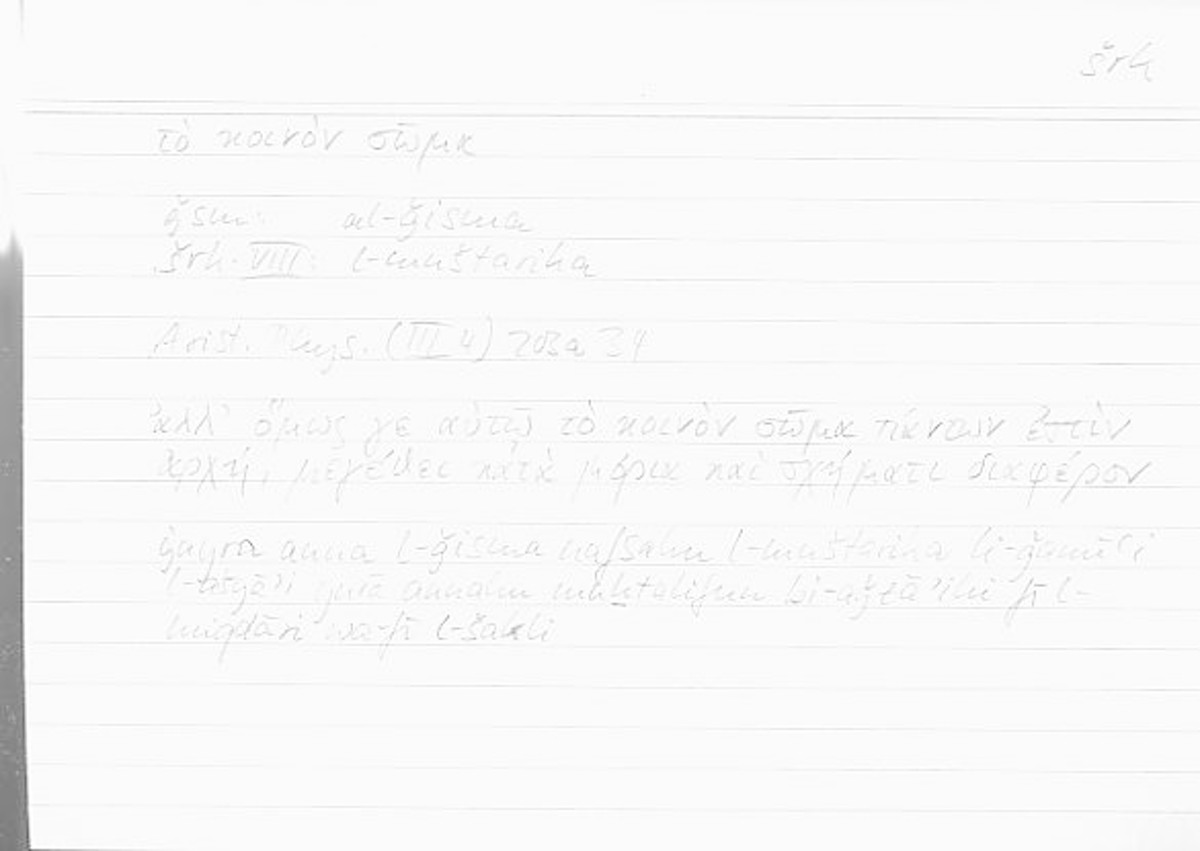 šrk
τὸ κοινὸν σῶμα
ǧsm: al-ǧisma
šrk VIII: l-muštarika
Arist. Phys. (III 4) 203a 34
ἀλλ' ὅμως γε αὐτῷ τὸ κοινὸν σῶμα πάντων ἐστὶν
ἀρχή, μεγέθει κατὰ μόρια καὶ σχήματι διαφέρον
ġayra anna l-ǧisma nafsahu l-muštarika li-ǧamīʿi
l-ašyāʾi yurā annahu muḫtalifun bi-aǧzāʾihi fī l-
miqdāri wa-fī l-šakli